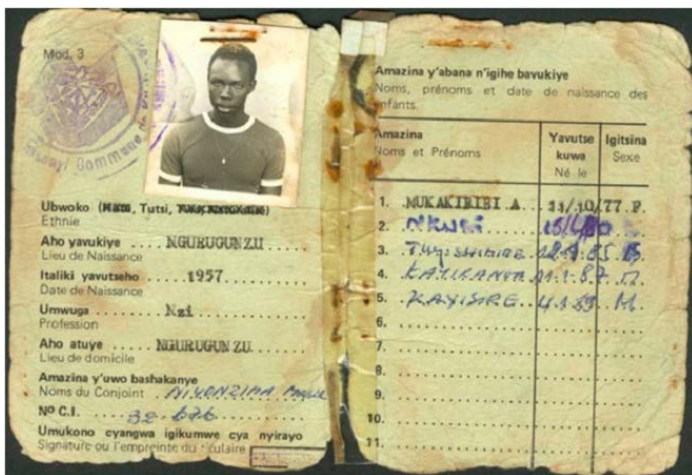 Mod. 3
Commune
Ubwoko (Hutu, Tutsi,
Ethnie
Aho yavukiye .... NGURUGUNZU
Lieu de Naissance
Italiki yavutseho .... 1957
Date de Naissance
Umwuga .... Nzi
Profession
Aho atuye .... NGURUGUNZU
Lieu de domicile
Amazina y'uwo bashakanye
Noms du Conjoint .. NIYONZIMA
Nº C.I. .... 32.676
Umukono cyangwa igikumwe cya nyirayo
Signature ou l'empreinte du titulaire
Amazina y'abana n'igihe bavukiye
Noms, prénoms et date de naissance des
enfants.
Amazina
Noms et Prénoms
Yavutse
kuwa
Né le
Igitsina
Sexe
1. MUKAKIBIBI A. 11/10/77 F.
2.
3.
4.
5. KAYISIRE 4.1.89 M
6.
7.
8.
9.
10.
11.